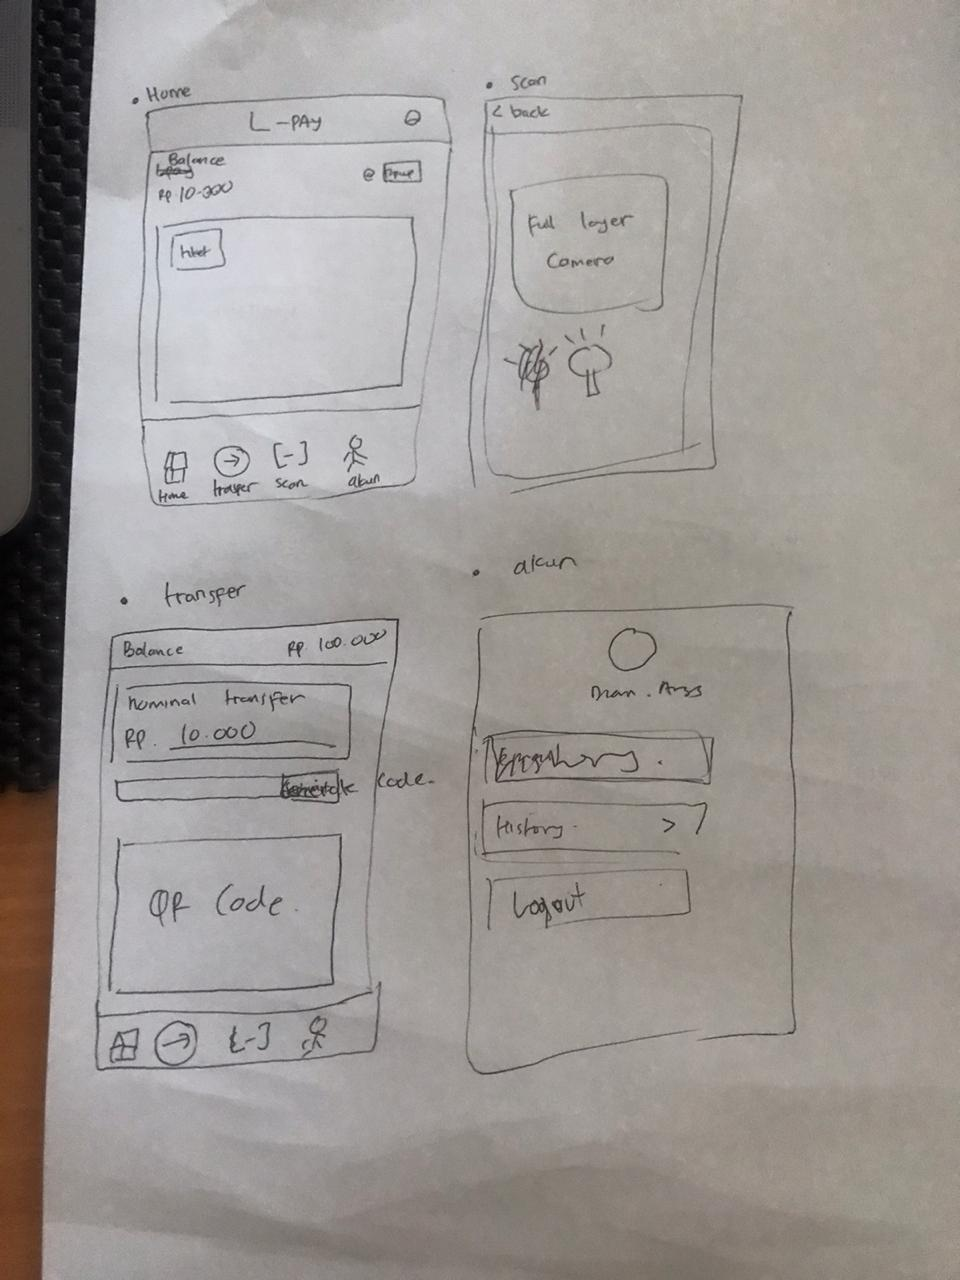 Home
L-PAY
Balance
Rp. 10.300
Home
trasper
scan
akun
Scan
< back
Full layer
Camera
transfer
Balance
Rp. 100.000
nominal transfer
Rp. 10.000
Code.
QR Code.
akun
History. >
Logout